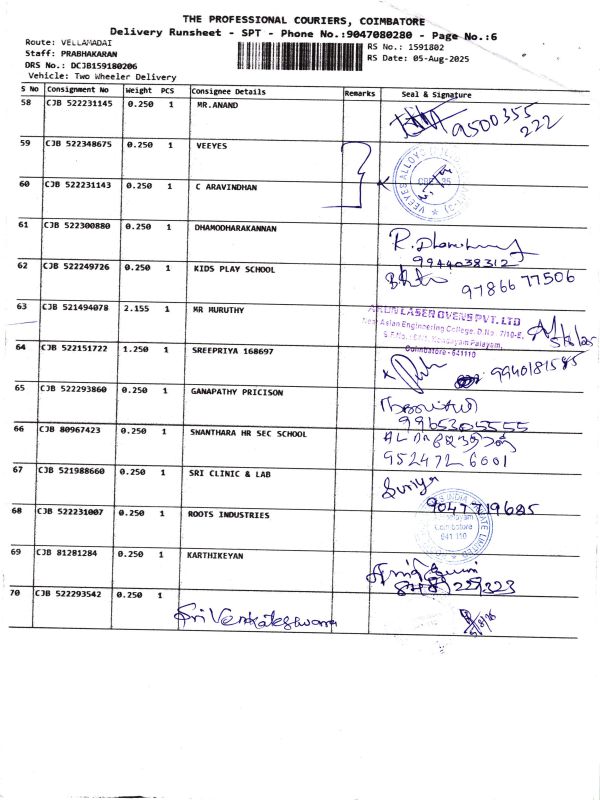 THE PROFESSIONAL COURIERS, COIMBATORE
Delivery Runsheet - SPT - Phone No.:9047080280 - Page No.:6
Route: VELLAMADAI
RS No.: 1591802
Staff: PRABHAKARAN
RS Date: 05-Aug-2025
DRS No.: DCJB159180206
Vehicle: Two Wheeler Delivery
S No Consignment No Weight PCS Consignee Details Remarks Seal & Signature
58 CJB 522231145 0.250 1 MR.ANAND
9500355
222
59 CJB 522348675 0.250 1 VEEYES
VEEYES ALLOYS
60 CJB 522231143 0.250 1 C ARAVINDHAN
61 CJB 522300880 0.250 1 DHAMODHARAKANNAN
9944038312
62 CJB 522249726 0.250 1 KIDS PLAY SCHOOL
97866 77506
63 CJB 521494078 2.155 1 MR MURUTHY
ARUN LASER OVENS PVT. LTD
Near Asian Engineering College, D.No. 7/10-E,
Palayam,
Coimbatore - 641110
64 CJB 522151722 1.250 1 SREEPRIYA 168697
9940181585
65 CJB 522293860 0.250 1 GANAPATHY PRICISON
9965305555
66 CJB 80967423 0.250 1 SHANTHARA HR SEC SCHOOL
952472 6001
67 CJB 521988660 0.250 1 SRI CLINIC & LAB
Suriya
9047719685
68 CJB 522231007 0.250 1 ROOTS INDUSTRIES
Coimbatore
641 110
69 CJB 81281284 0.250 1 KARTHIKEYAN
70 CJB 522293542 0.250 1
Sri Venkateshwara
5/8/25